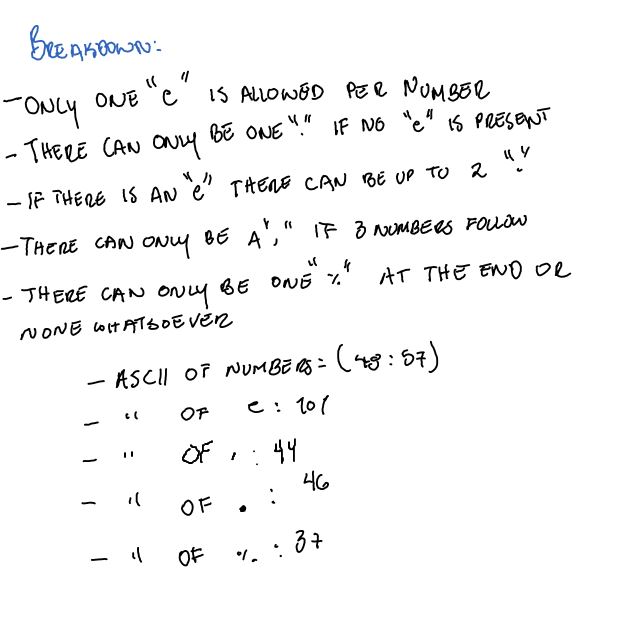 BREAKDOWN:
- ONLY ONE "e" IS ALLOWED PER NUMBER
- THERE CAN ONLY BE ONE "." IF NO "e" IS PRESENT
- IF THERE IS AN "e" THERE CAN BE UP TO 2 "."
- THERE CAN ONLY BE A "," IF 3 NUMBERS FOLLOW
- THERE CAN ONLY BE ONE "%" AT THE END OR
NONE WHATSOEVER
- ASCII OF NUMBERS = (48:57)
- " OF e: 101
- " OF , : 44
- " OF . : 46
- " OF % : 37